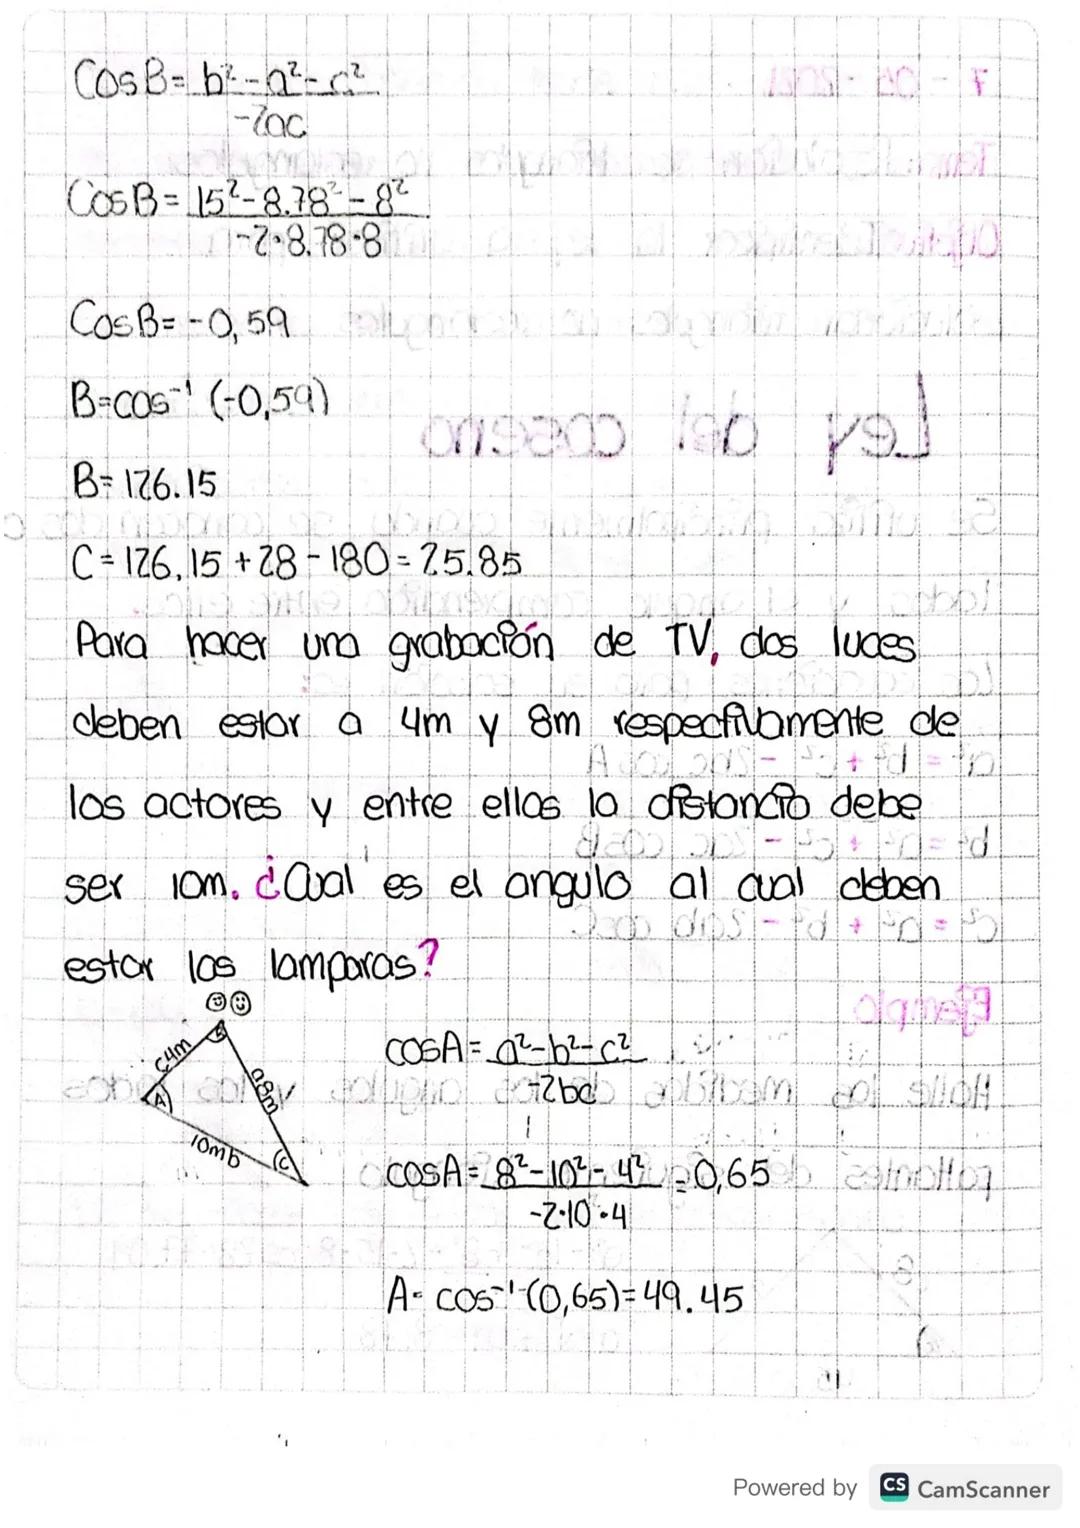 CosB= b²-a²-c²
-2ac
CosB= 15²-8.78²-8²
-2·8.78·8
CosB= -0,59
B=cos⁻¹ (-0,59)
B= 126.15
C= 126,15 +28-180= 25.85
Para hacer una grabación de TV, dos luces
deben estar a 4m y 8m respectivamente de
los actores y entre ellas la distancia debe
ser 10m. ¿Cual es el angulo al cual deben
estar las lamparas?
c4m
a8m
A
10mb
C
cosA= a²-b²-c²
-2bc
cosA= 8²-10²-4² =0,65
-2·10·4
A= cos⁻¹(0,65)=49.45
Powered by CS CamScanner